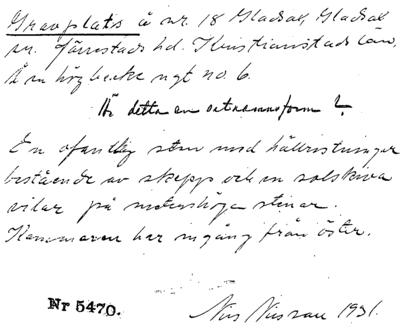 Gravplats å nr. 18 Gladsax, Gladsax
sn. Järrestads hd. Kristianstads län,
å en hög backe ngt no. 6.
Är detta en ortnamnsform?
En ofantlig sten med hällristningar
bestående av skepp och en solskiva
vilar på meterhöga stenar.
Kammaren har ingång från öster.
Nr 5470.
Nils Nilsson 1931.